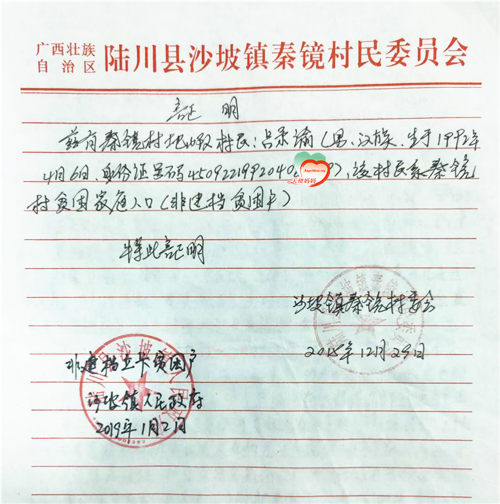 广西壮族
自治区
陆川县沙坡镇秦镜村民委员会
证明
兹有秦镜村 村民:吕 (男、汉族、生于1992年
4月6日、身份证号码4509221992040 ),该村民系秦镜
村贫困家庭人口(非建档贫困户)
特此证明
沙坡镇秦镜村委会
2018年12月29日
非建档立卡贫困户
沙坡镇人民政府
2019年1月2日